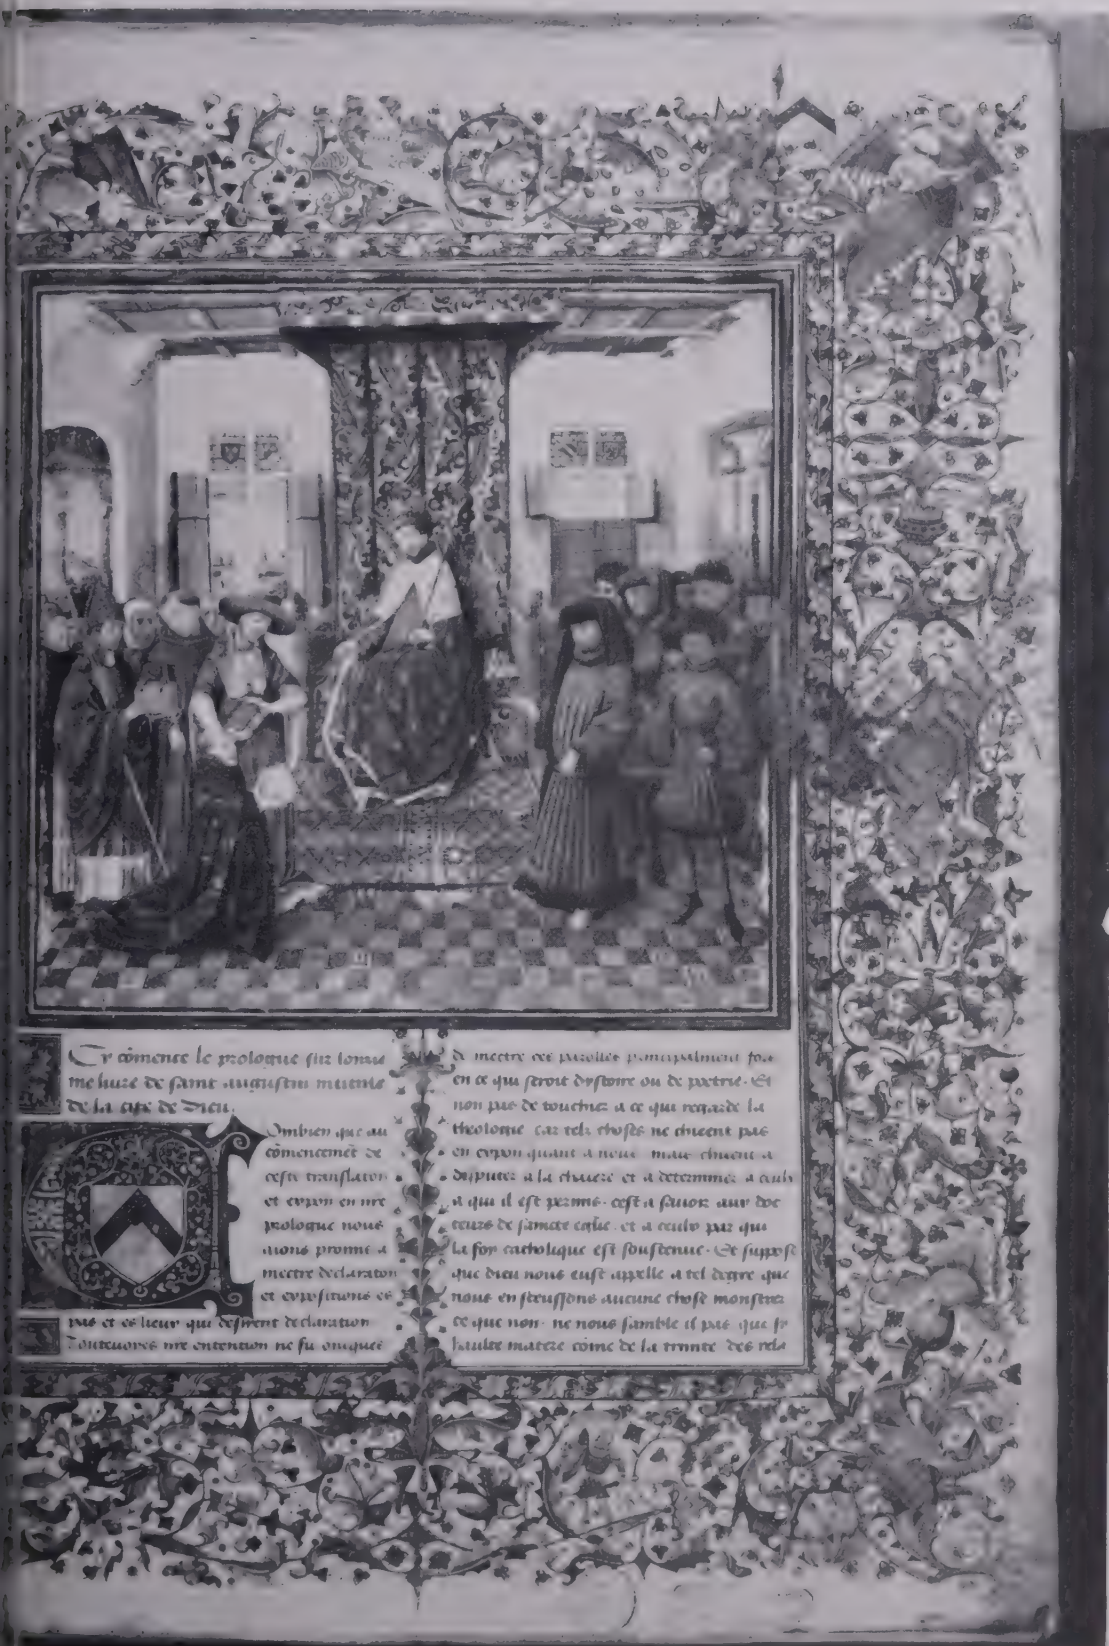 Cy cōmence le prologue sur lonzie
me liure de saint augustin intitule
de la cite de dieu.
Combien que au
cōmencemēt de
ceste translaton
et expon en nre
prologue nous
aions promis a
mectre declaraton
et expositions es
pas et es lieux qui desirent declaration
Toutevoies nre entention ne fu oncques
de mectre ces parolles principalment fors
en ce qui seroit dystoire ou de poetrie. Et
non pas de touchier a ce qui regarde la
theologie car telz choses ne chieent pas
en expon quant a nous mais chieent a
disputer a la chaiere et a determiner a ceulx
a qui il est permis. cest a sauoir aux doc
teurs de saincte eglie. et a ceulx par qui
la foy catholique est soustenue. Et suppose
que dieu nous eust appelle a tel degre que
nous en sceussions aucune chose monstrer
ce que non. ne nous samble il pas que sy
haulte matere cōme de la trinite des rela